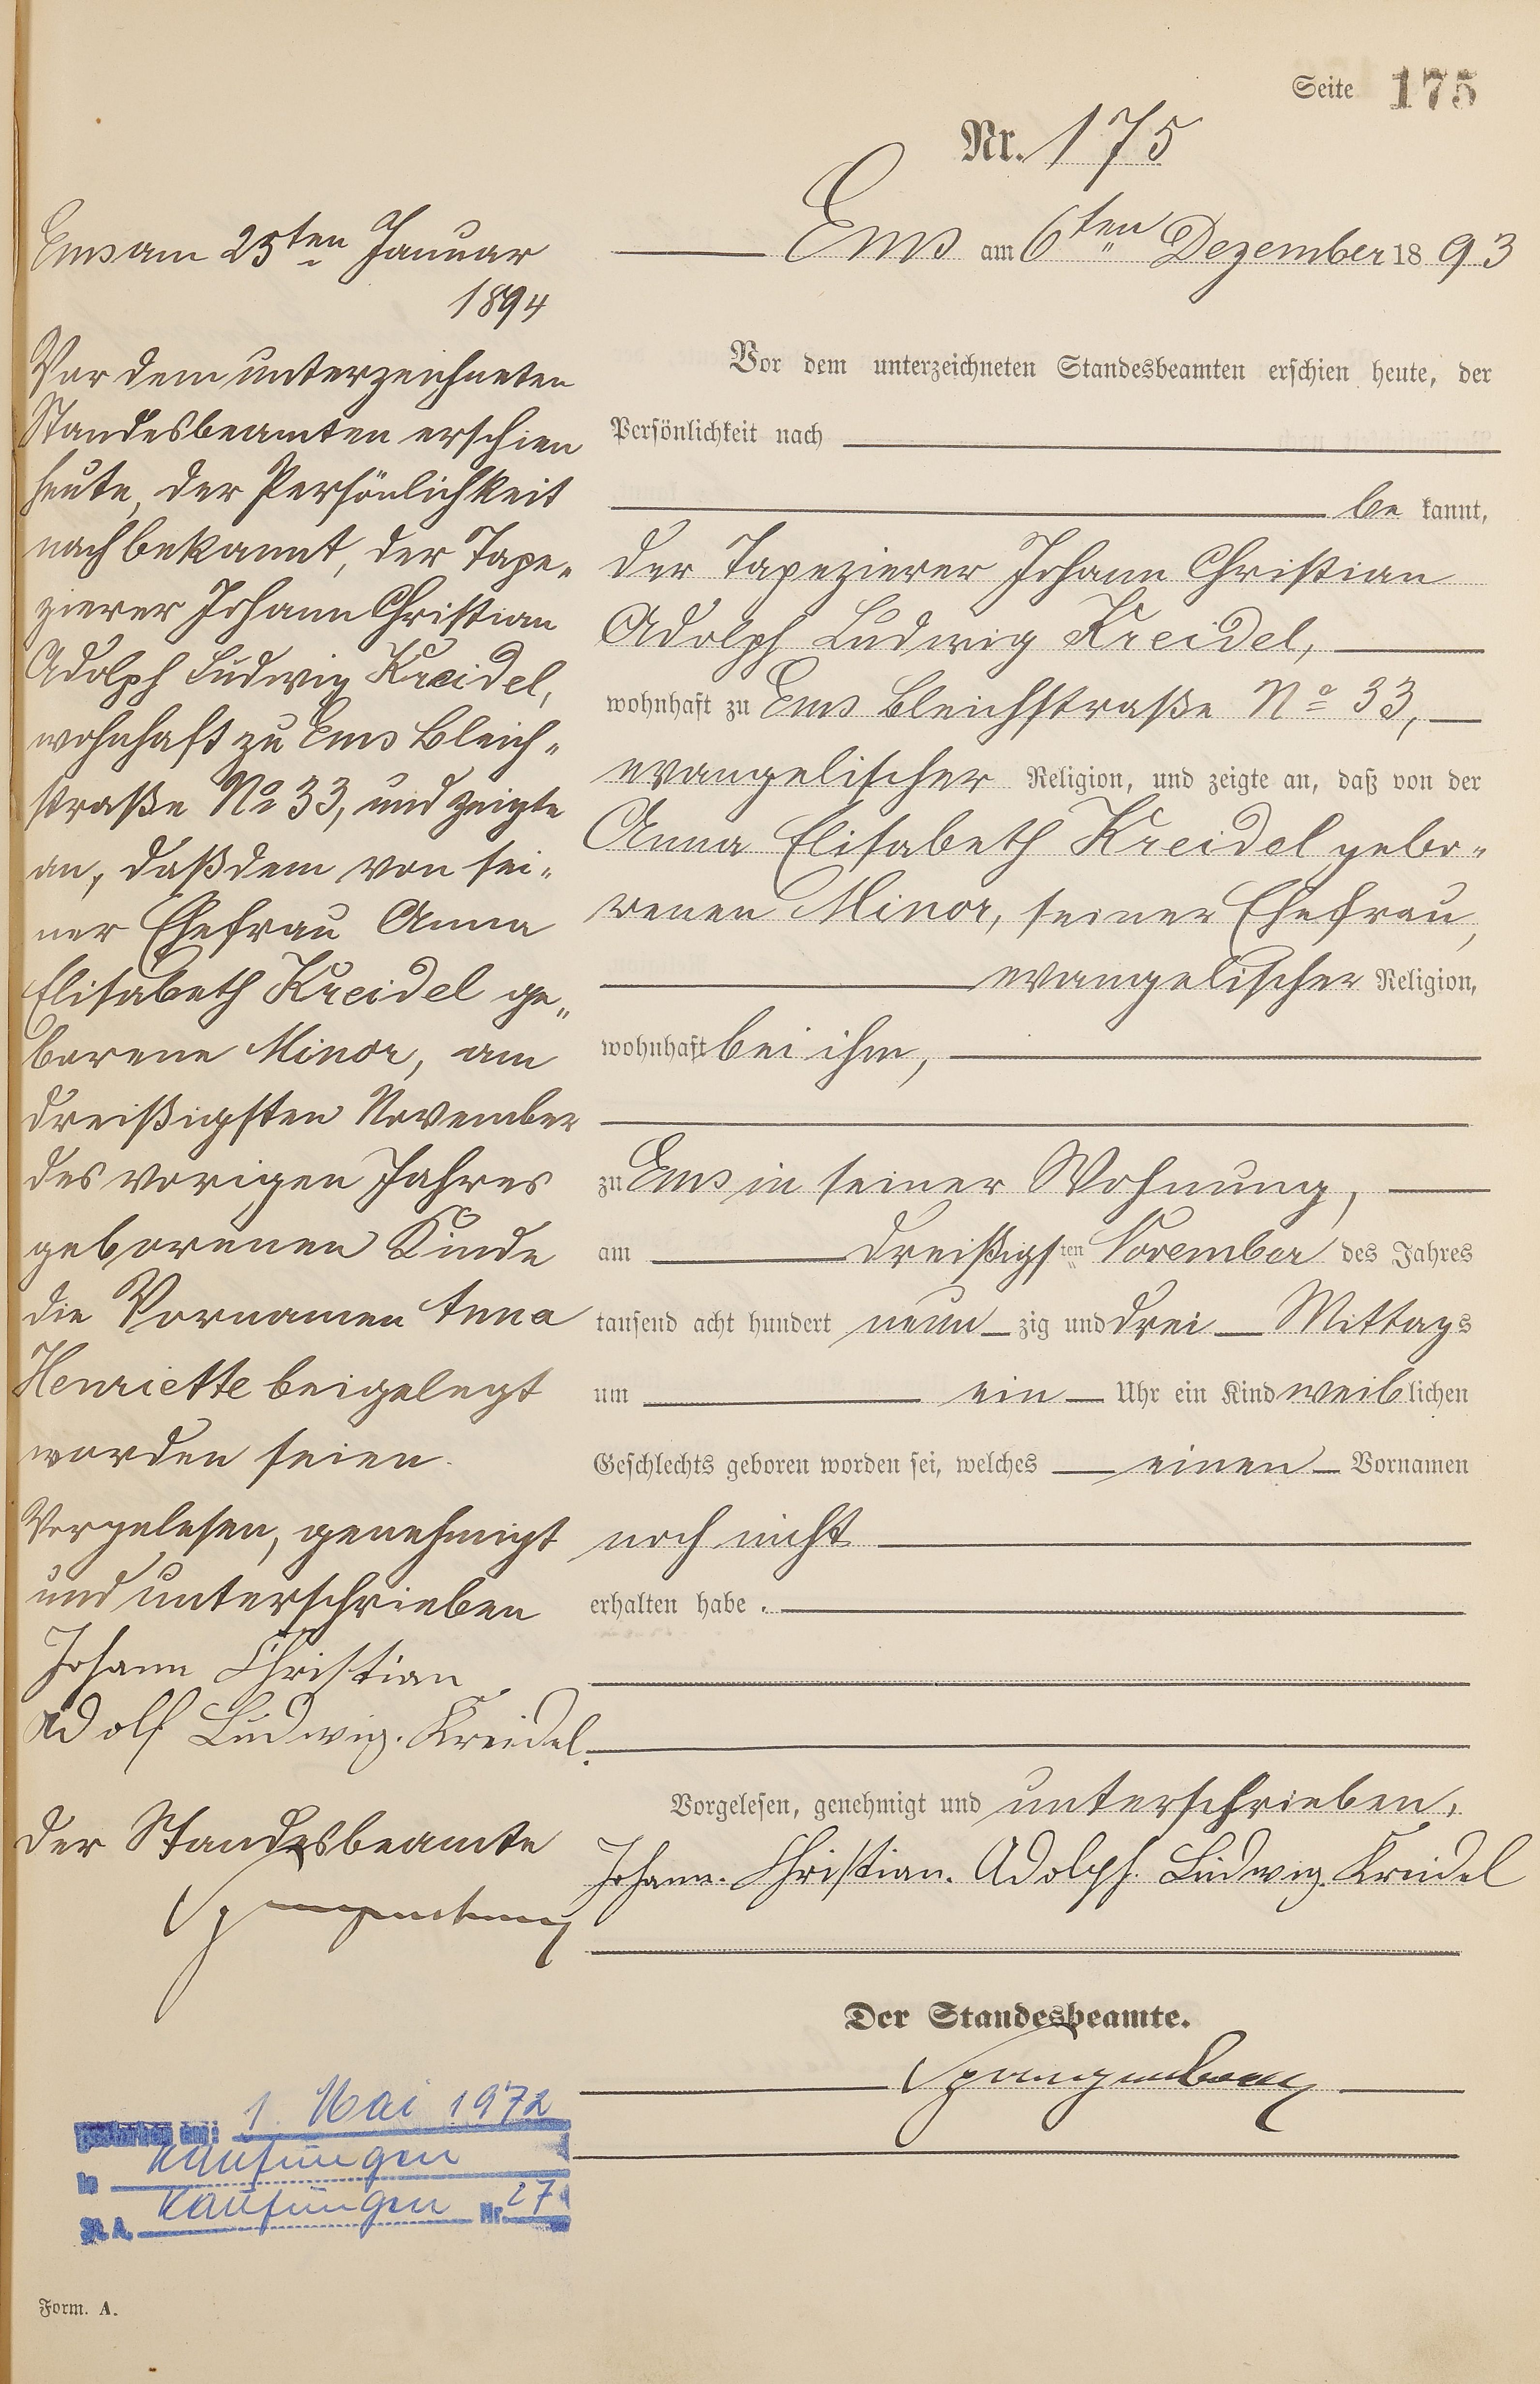 Seite 175
Nr. 175
Ems am 6ten Dezember 1893
Vor dem unterzeichneten Standesbeamten erschien heute, der
Persönlichkeit nach
be kannt,
der Tapezierer Johann Christian
Adolph Ludwig Kreidel,
wohnhaft zu Ems Bleichstraße No 33,
evangelischer Religion, und zeigte an, daß von der
Anna Elisabeth Kreidel gebo-
renen Minor, seiner Ehefrau,
evangelischer Religion,
wohnhaft bei ihm,
zu Ems in seiner Wohnung,
am dreißigsten November des Jahres
tausend acht hundert neun zig und drei Mittags
um ein Uhr ein Kind weiblichen
Geschlechts geboren worden sei, welches einen Vornamen
noch nicht
erhalten habe.
Vorgelesen, genehmigt und unterschrieben.
Johann. Christian. Adolph. Ludwig. Kreidel
Der Standesbeamte.
Spangenberg
Ems am 25ten Januar
1894
Vor dem unterzeichneten
Standesbeamten erschien
heute, der Persönlichkeit
nach bekannt, der Tape-
zierer Johann Christian
Adolph Ludwig Kreidel,
wohnhaft zu Ems Bleich-
straße No 33, und zeigte
an, daß dem von sei-
ner Ehefrau Anna
Elisabeth Kreidel ge-
borene Minor, am
dreißigsten November
des vorigen Jahres
geborenen Kinde
die Vornamen Anna
Henriette beigelegt
worden seien.
Vorgelesen, genehmigt
und unterschrieben
Johann Christian
Adolf Ludwig. Kreidel.
Der Standesbeamte
Spangenberg
gestorben am: 1. Mai 1972
in Kaufungen
St. A. Kaufungen Nr. 27
Form. A.